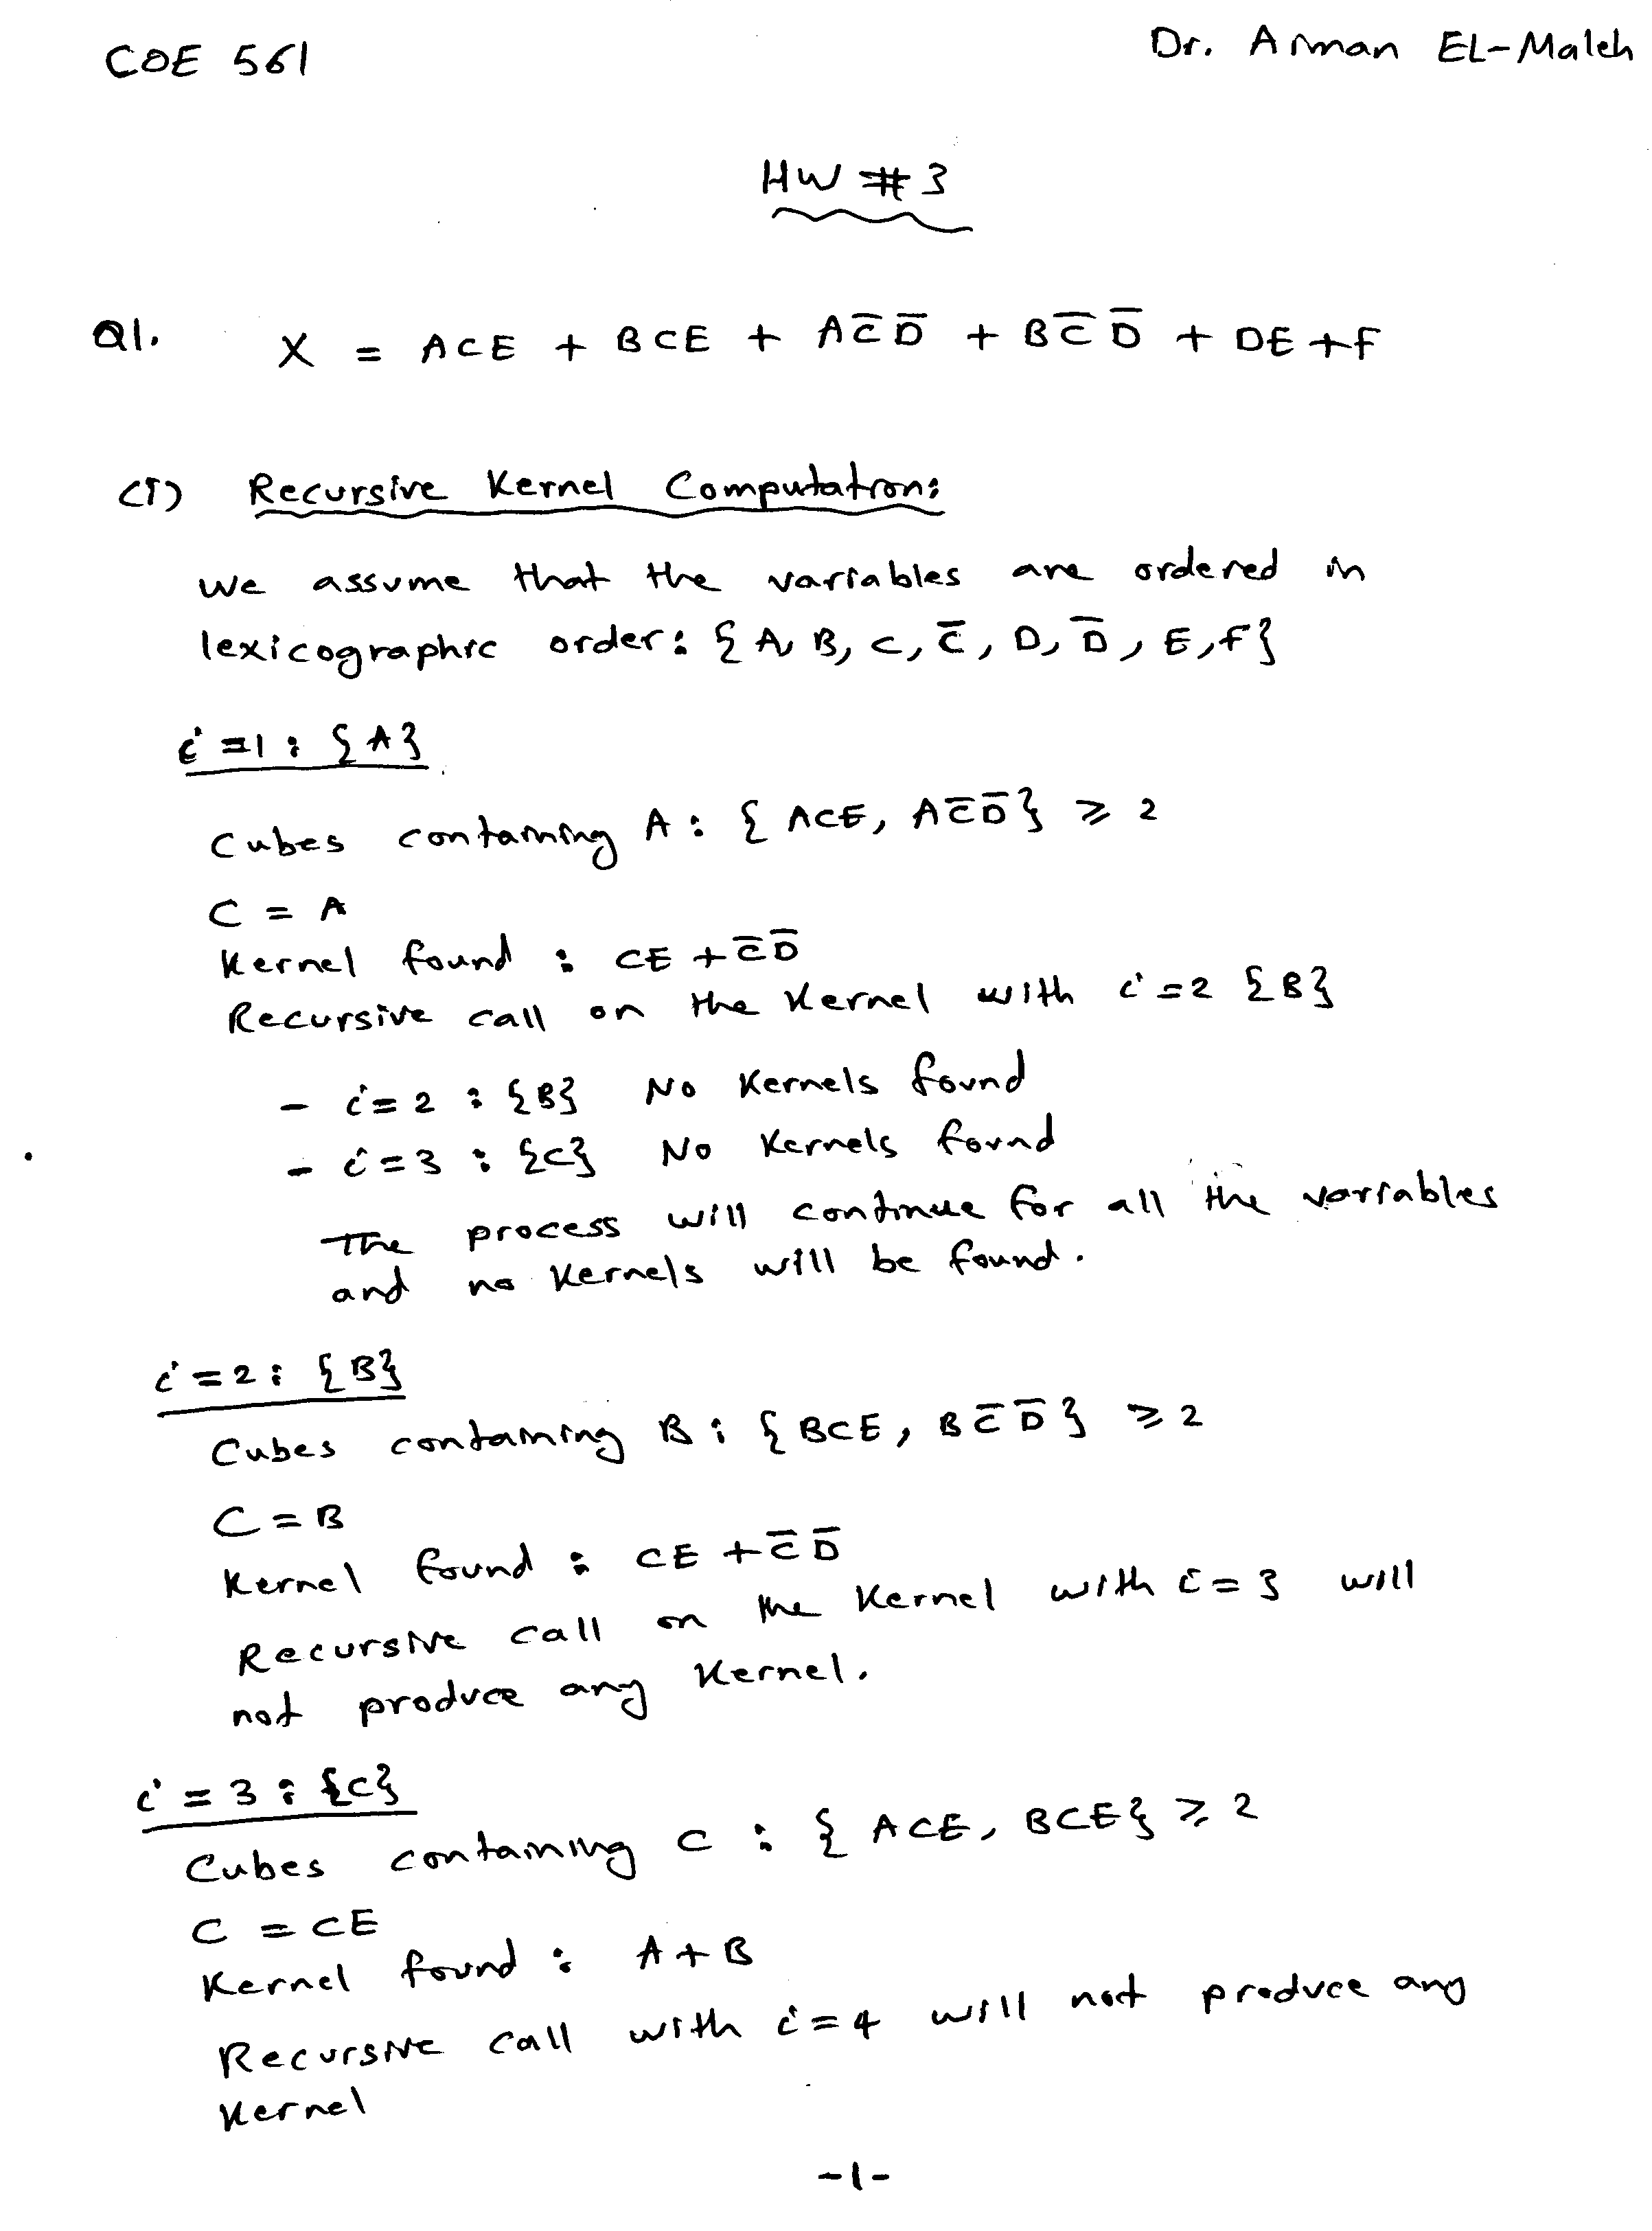 COE 561
Dr. Aiman EL-Maleh
HW #3
Q1. X = ACE + BCE + AC̅D̅ + BC̅D̅ + DE + F
(i) Recursive Kernel Computation:
we assume that the variables are ordered in
lexicographic order: {A, B, C, C̅, D, D̅, E, F}
i=1: {A}
Cubes containing A: {ACE, AC̅D̅} ≥ 2
C = A
Kernel found : CE + C̅D̅
Recursive call on the Kernel with i=2 {B}
- i=2 : {B} No Kernels found
- i=3 : {C} No Kernels found
The process will continue for all the variables
and no Kernels will be found.
i=2: {B}
Cubes containing B: {BCE, BC̅D̅} ≥ 2
C = B
Kernel found : CE + C̅D̅
Recursive call on the Kernel with i=3 will
not produce any Kernel.
i=3: {C}
Cubes containing C : {ACE, BCE} ≥ 2
C = CE
Kernel found : A+B
Recursive call with i=4 will not produce any
Kernel
-1-